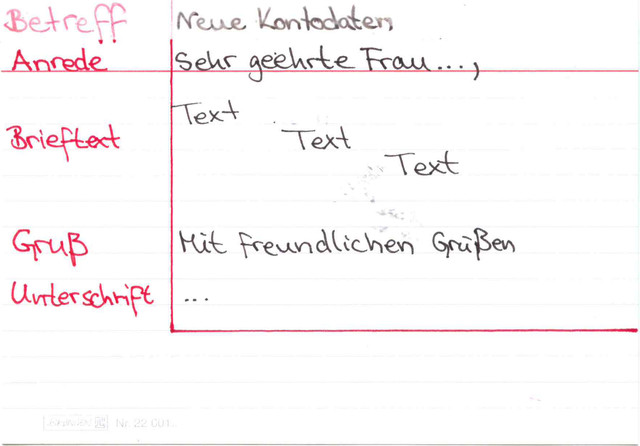 Betreff Neue Kontodaten
Anrede Sehr geehrte Frau...,
Text
Brieftext Text
Text
Gruß Mit freundlichen Grüßen
Unterschrift ...
Nr. 22 601